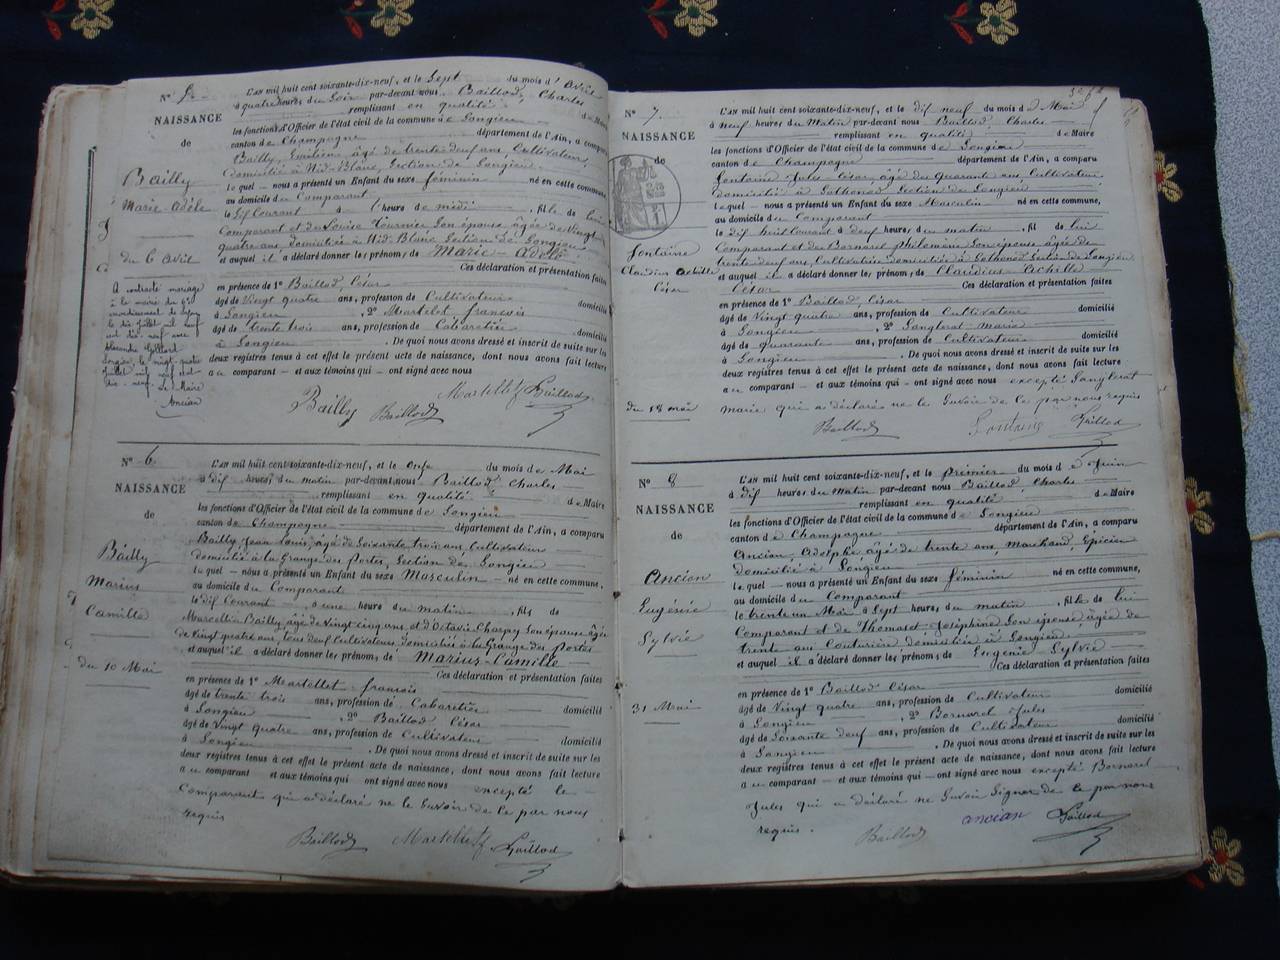 N° 5
NAISSANCE
de
Bailly
Marie-Adèle
du 6 Avril
A contracté mariage
à la mairie du 6e
arrondissement de Lyon
le dix juillet mil neuf
cent dix neuf avec
Alexandre
Songieu, le vingt quatre
juillet mil neuf cent
dix-neuf.
Le Maire
Ancian
L'AN mil huit cent soixante-dix-neuf, et le Sept du mois d' Avril
à quatre heures du Soir par-devant nous Baillod, Charles
remplissant en qualité de Maire
les fonctions d'Officier de l'état civil de la commune de Songieu
canton de Champagne département de l'Ain, a comparu
Bailly, âgé de trente neuf ans Cultivateur
domicilié à Nid-Blanc, Section de Songieu
lequel — nous a présenté un Enfant du sexe féminin né en cette commune
au domicile du Comparant
le Six Courant à l' heure de midi, fille de lui
Comparant et de Louise Tournier Son épouse âgée de Vingt
quatre ans domiciliée à Nid-Blanc Section de Songieu
et auquel il a déclaré donner les prénoms de Marie-Adèle
Ces déclaration et présentation faites
en présence de 1° Baillod, César
âgé de Vingt quatre ans, profession de Cultivateur domicilié
à Songieu, 2° Martelet françois
âgé de trente trois ans, profession de Cabaretier domicilié
à Songieu. De quoi nous avons dressé et inscrit de suite sur les
deux registres tenus à cet effet le présent acte de naissance, dont nous avons fait lecture
au comparant — et aux témoins qui — ont signé avec nous
Bailly Baillod Martellet f Baillod
N° 6
NAISSANCE
de
Bailly
Marius
Camille
du 10 Mai
L'AN mil huit cent soixante-dix-neuf, et le onze du mois de Mai
à dix heures du matin par-devant nous Baillod Charles
remplissant en qualité de Maire
les fonctions d'Officier de l'état civil de la commune de Songieu
canton de Champagne département de l'Ain, a comparu
Bailly Jean Louis, âgé de Soixante trois ans Cultivateur
domicilié à la Grange des portes, Section de Songieu
lequel — nous a présenté un Enfant du sexe Masculin — né en cette commune,
au domicile du Comparant
le dix Courant à une heure du matin, fils de
Marcellin Bailly, âgé de Vingt cinq ans et d'Octavie Charpy Son épouse âgée
de Vingt quatre ans, tous deux Cultivateurs domiciliés à la Grange des Portes
et auquel il a déclaré donner les prénoms de Marius-Camille
Ces déclaration et présentation faites
en présence de 1° Martellet françois
âgé de trente trois ans, profession de Cabaretier domicilié
à Songieu, 2° Baillod César
âgé de Vingt quatre ans, profession de Cultivateur domicilié
à Songieu. De quoi nous avons dressé et inscrit de suite sur les
deux registres tenus à cet effet le présent acte de naissance, dont nous avons fait lecture
au comparant et aux témoins qui ont signé avec nous excepté le
Comparant qui a déclaré ne le Savoir de Ce par nous
requis
Baillod Martellet f Baillod
N° 7
NAISSANCE
de
Fontaine
Claudius Achille
César
du 18 mai
L'AN mil huit cent soixante-dix-neuf, et le dix neuf du mois de Mai
à neuf heures du Matin par-devant nous Baillod Charles
remplissant en qualité de Maire
les fonctions d'Officier de l'état civil de la commune de Songieu
canton de Champagne département de l'Ain, a comparu
Fontaine Jules César âgé de quarante ans, Cultivateur
domicilié à Sothonod, Section de Songieu
lequel — nous a présenté un Enfant du sexe Masculin né en cette commune,
au domicile du Comparant
le dix huit Courant à deux heures du matin, fils de lui
Comparant et de Bornarel philomène Son épouse âgée de
trente deux ans, Cultivatrice domiciliée à Sothonod Section de Songieu
et auquel il a déclaré donner les prénoms de Claudius Achille
César Ces déclaration et présentation faites
en présence de 1° Baillod, César
âgé de Vingt quatre ans, profession de Cultivateur domicilié
à Songieu, 2° Sanglerat Marie
âgé de quarante ans, profession de Cultivateur domicilié
à Songieu. De quoi nous avons dressé et inscrit de suite sur les
deux registres tenus à cet effet le présent acte de naissance, dont nous avons fait lecture
au comparant — et aux témoins qui — ont signé avec nous excepté Sanglerat
Marie qui a déclaré ne le Savoir de Ce par nous requis
Baillod Fontaine Baillod
N° 8
NAISSANCE
de
Ancian
Eugénie
Sylvie
31 Mai
L'AN mil huit cent soixante-dix-neuf, et le premier du mois de Juin
à dix heures du Matin par-devant nous Baillod Charles
remplissant en qualité de Maire
les fonctions d'Officier de l'état civil de la commune de Songieu
canton de Champagne département de l'Ain, a comparu
Ancian Adolphe âgé de trente ans, Marchand, Epicier
domicilié à Songieu
lequel — nous a présenté un Enfant du sexe féminin né en cette commune,
au domicile du Comparant
le trente un Mai à Sept heures du matin, fille de lui
Comparant et de Thomasset Joséphine Son épouse âgée de
trente ans Couturière domiciliée à Songieu
et auquel il a déclaré donner les prénoms de Eugénie Sylvie
Ces déclaration et présentation faites
en présence de 1° Baillod César
âgé de Vingt quatre ans, profession de Cultivateur domicilié
à Songieu, 2° Bornarel Jules
âgé de Soixante deux ans, profession de Cultivateur domicilié
à Songieu. De quoi nous avons dressé et inscrit de suite sur les
deux registres tenus à cet effet le présent acte de naissance, dont nous avons fait lecture
au comparant — et aux témoins qui — ont signé avec nous excepté Bornarel
Jules qui a déclaré ne Savoir Signer de Ce par nous
requis.
Baillod ancian Baillod